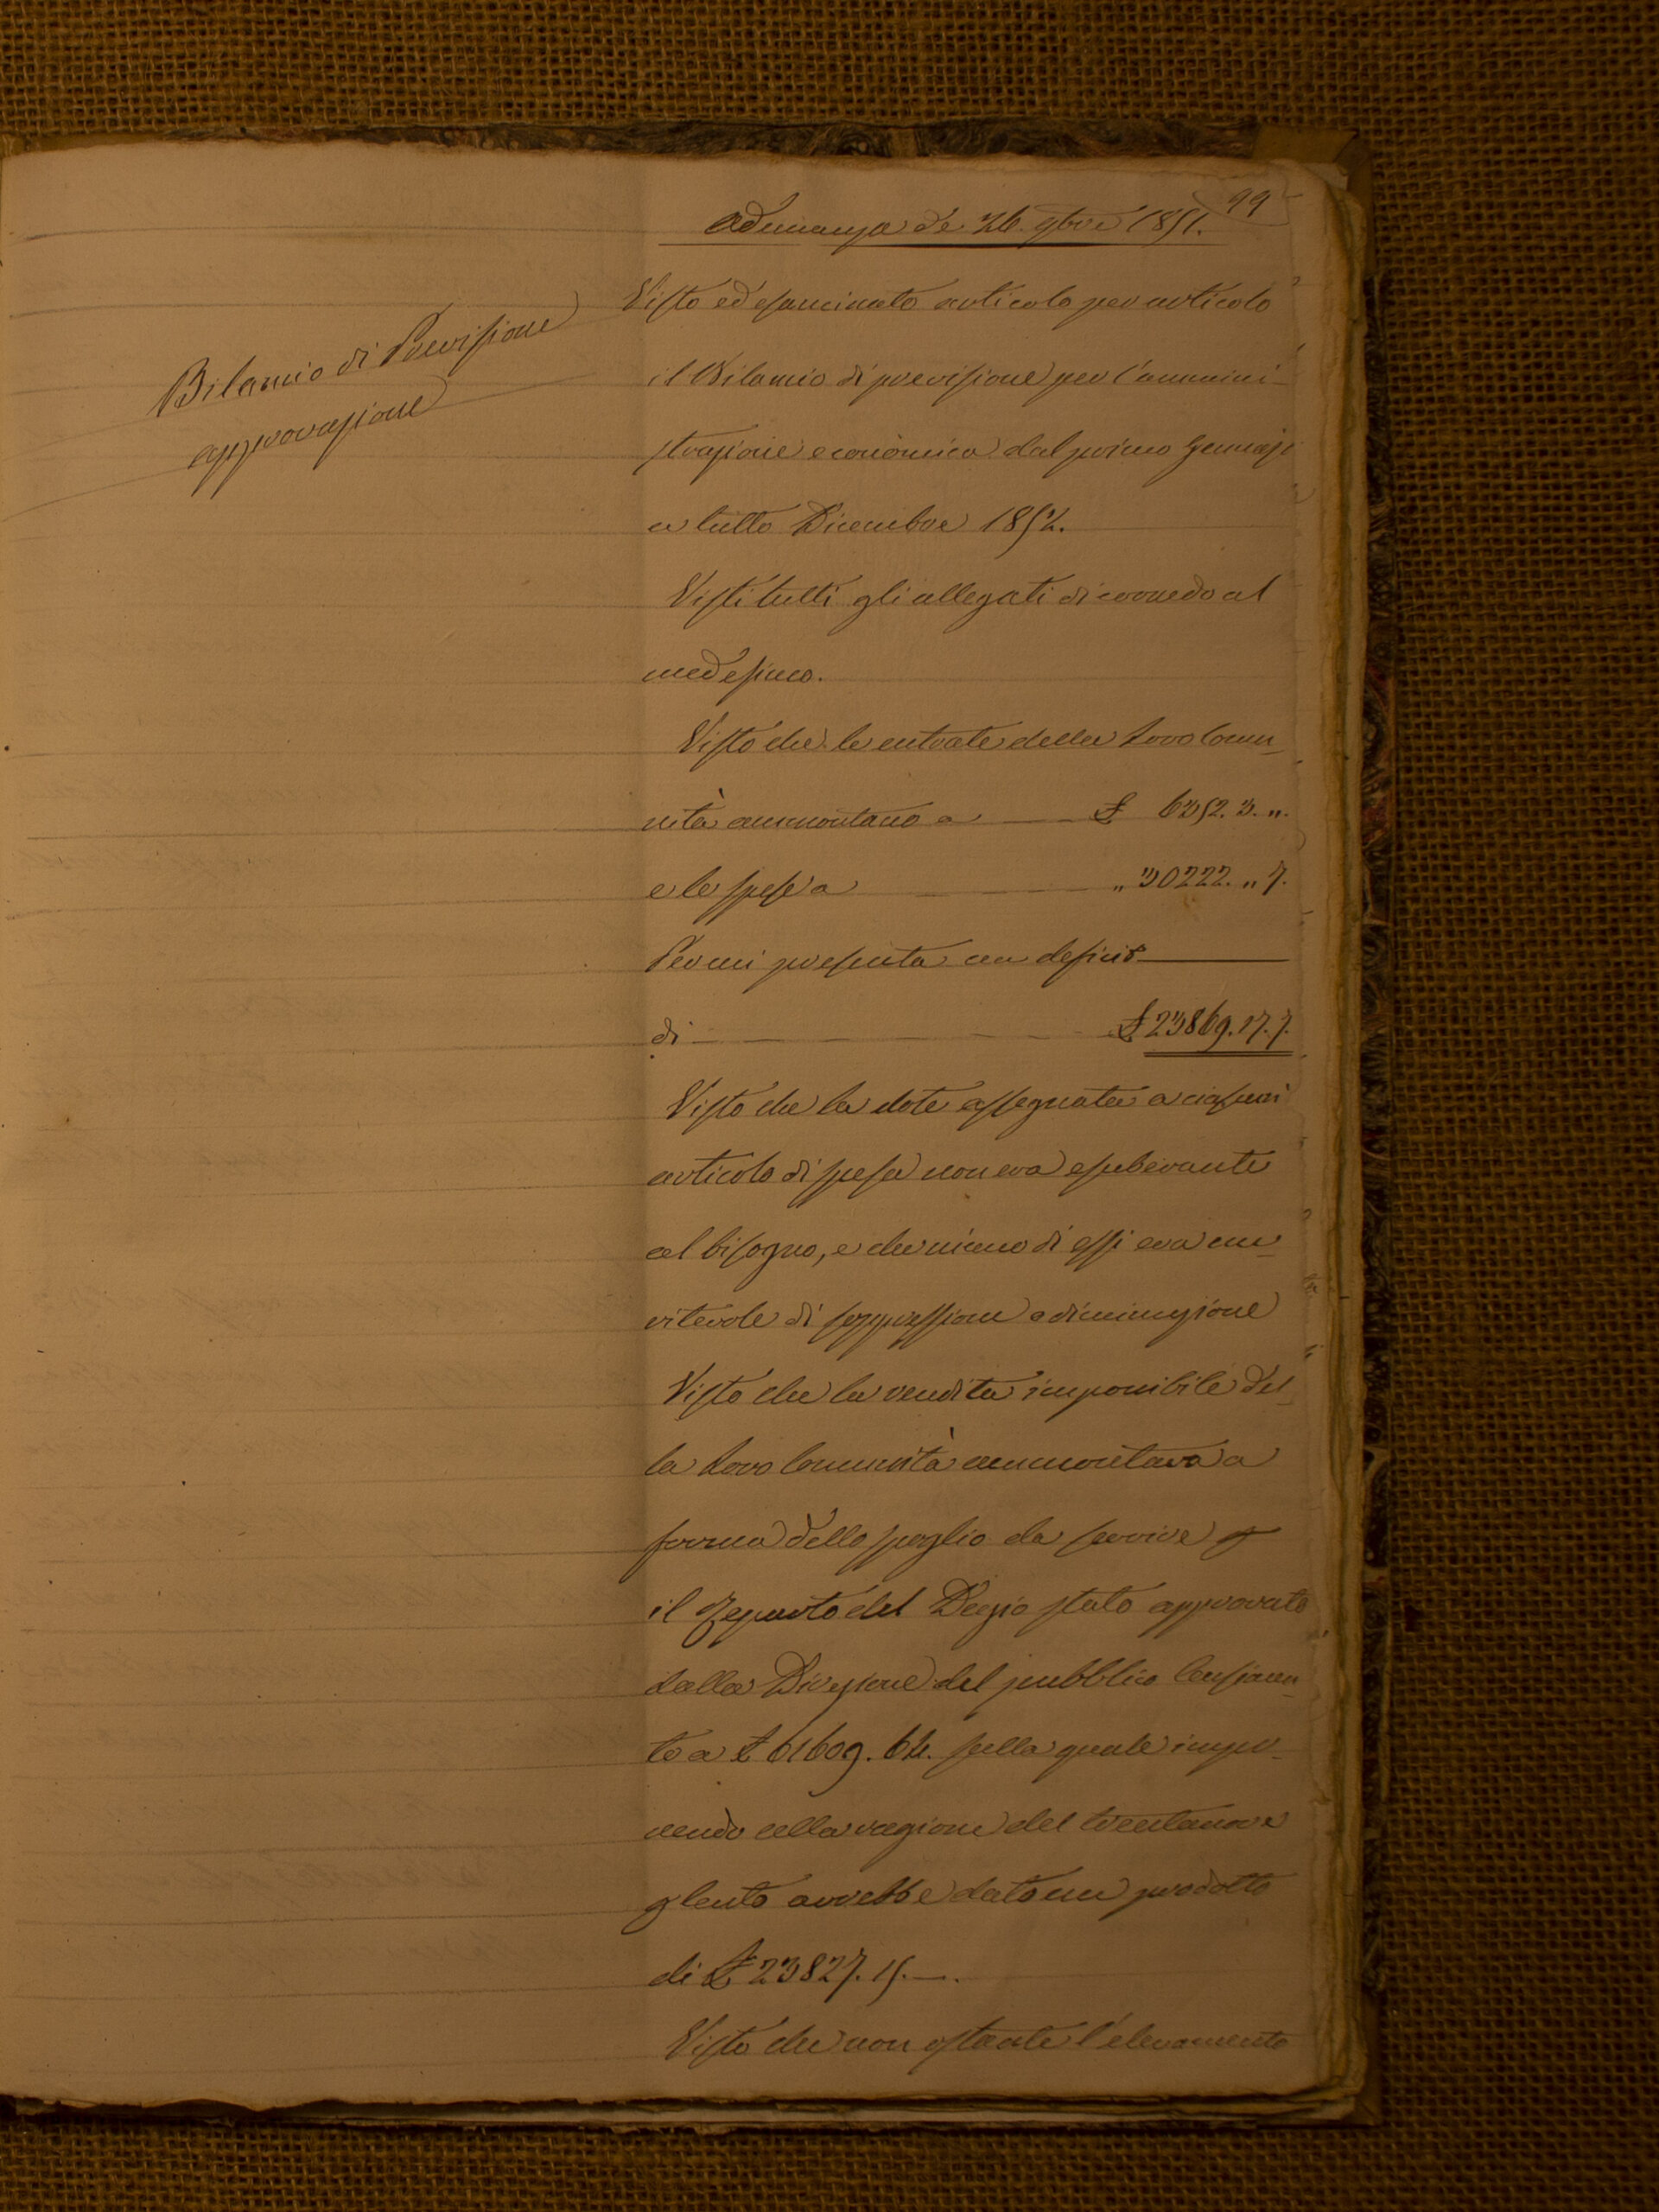 99
Adunanza de 26. 9bre 1851.
Bilancio di Previsione
approvazione
Visto ed esaminato articolo per articolo
il Bilancio di previsione per l'ammini-
strazione economica dal primo Gennajo
a tutto Dicembre 1852.
Visti tutti gli allegati di corredo al
medesimo.
Visto che le entrate della Loro Comu-
nità ammontano a £ 6352. 3. „.
e le spese a „ 30222. „ 7.
Per cui presenta un deficit
di £ 23869. 17. 7.
Visto che la dote assegnata a ciascun
articolo di spesa non era esuberante
al bisogno, e che niuno di essi era me-
ritevole di soppressione o diminuzione
Visto che la rendita imponibile del-
la Loro Comunità ammontava a
forma dello spoglio da servire p
il Reparto del Dazio stato approvato
dalla Direzione del pubblico Censimen-
to a £ 61609. 64. sulla quale impo-
nendo alla ragione del trentanove
p Cento avrebbe dato un prodotto
di £ 23827. 15. —.
Visto che non ostante l'elevamento